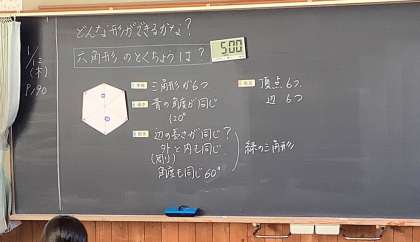 どんな形ができるかな?
六角形のとくちょうは?
5:00
1/12
(木)
P190
三角形が6つ
青の角度が同じ
120°
辺の長さが同じ?
外と内も同じ
角度も同じ60°
緑の三角形
頂点6つ
辺 6つ